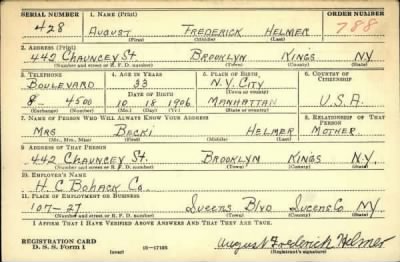 SERIAL NUMBER 1. NAME (Print) ORDER NUMBER
428 AUGUST FREDERICK HELMER 788
(First) (Middle) (Last)
2. ADDRESS (Print)
442 CHAUNCEY ST. BROOKLYN KINGS N.Y.
(Number and street or R. F. D. number) (Town) (County) (State)
3. TELEPHONE 4. AGE IN YEARS 5. PLACE OF BIRTH 6. COUNTRY OF CITIZENSHIP
BOULEVARD 33 N.Y. CITY
DATE OF BIRTH
8- 4500 10 18 1906 MANHATTAN U.S.A.
(Exchange) (Number) (Mo.) (Day) (Yr.) (State or country)
7. NAME OF PERSON WHO WILL ALWAYS KNOW YOUR ADDRESS 8. RELATIONSHIP OF THAT PERSON
MRS BECKI HELMER MOTHER
(Mr., Mrs., Miss) (First) (Middle) (Last)
9. ADDRESS OF THAT PERSON
442 CHAUNCEY ST. BROOKLYN KINGS N.Y.
(Number and street or R. F. D. number) (Town) (County) (State)
10. EMPLOYER'S NAME
H. C. BOHACK CO.
11. PLACE OF EMPLOYMENT OR BUSINESS
107-27 QUEENS BLVD QUEENS CO N.Y.
(Number and street or R. F. D. number) (Town) (County) (State)
I AFFIRM THAT I HAVE VERIFIED ABOVE ANSWERS AND THAT THEY ARE TRUE.
REGISTRATION CARD
D. S. S. FORM 1 (over) 16-17105 August Frederick Helmer
(Registrant's signature)